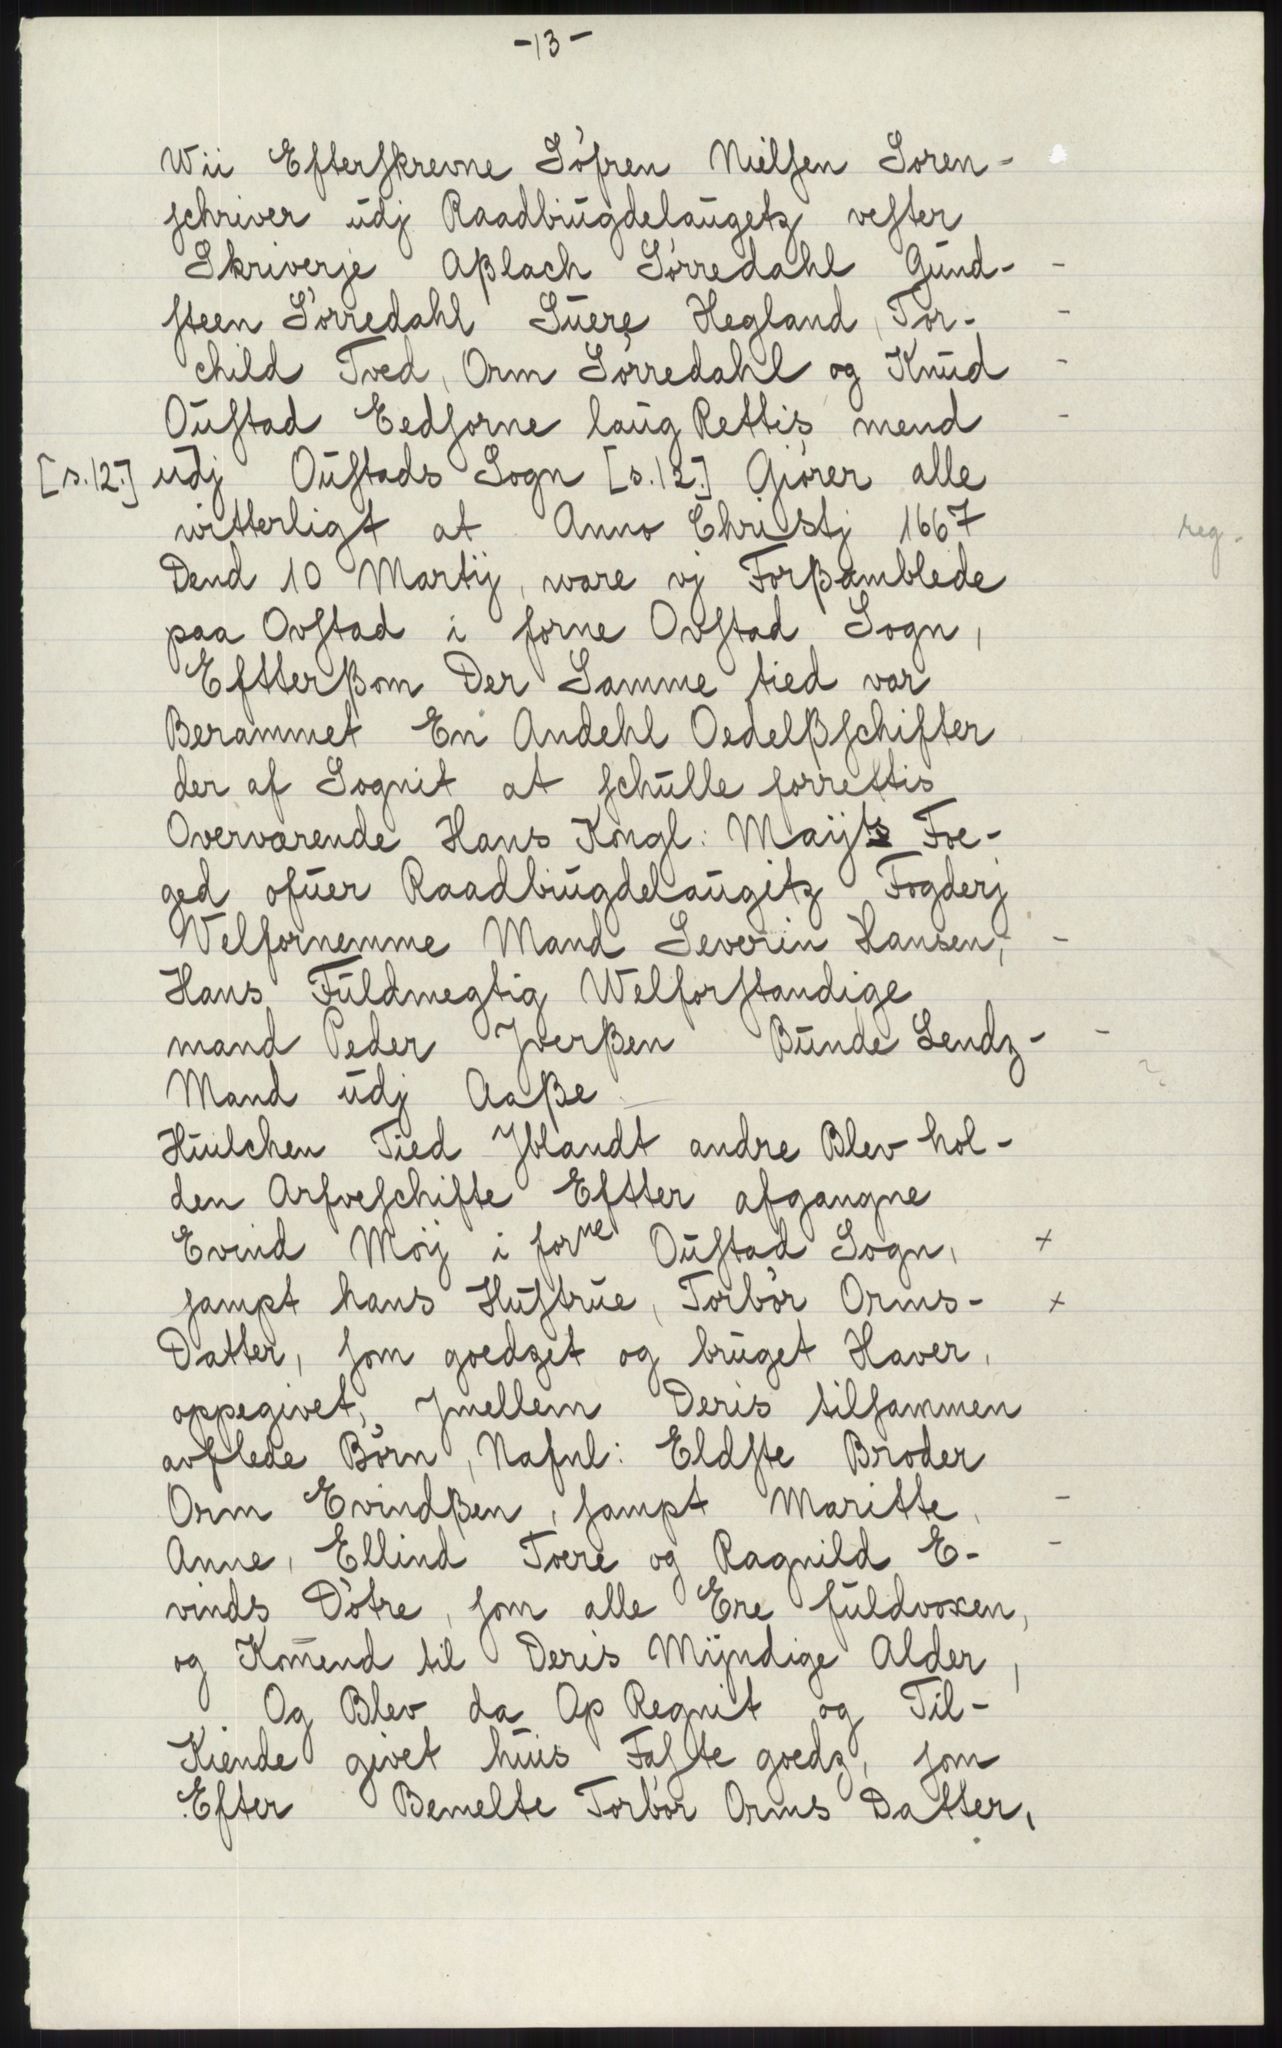 -13-
Wii Efterskrevne Söfren Nielsen Soren-
schriver udj Raadbiugdelaugetz vester
Skriverje Aßlach Sörredahl Gund-
steen Sörredahl Suere Hegland, Tor-
child Tved, Orm Sörredahl og Knud
Oustad Eedsorne laug Rettis mend
[s.12.] udj Oustads Sogn [s.12.] Giörer alle
witterligt at Anno Christj 1667
reg.
Dend 10 Martij, ware vj Forßamblede
paa Ovstad i forne Ovstad Sogn,
Eftterßom Der Samme tied var
Berammet En Andehl Oedelßschifter
der af Sognit at schulle forrettis
Overværende Hans Kongl: Maijtz Foe-
ged ofuer Raadbiugdelaugitz Fogderj
Velfornemme Mand Severin Hansen,
Hans Fuldmegtig Welforstandige
mand Peder Jverßen Bunde Lendz-
Mand udj Aaße
Huilchen Tied Jblandt andre Blev hol-
den Arfveschifte Eftter afgangne
Evind Möj i forne Oustad Sogn, x
sampt hans Hustrue, Torbör Orms- x
Datter, som goedzet og bruget Haver,
oppegivet, Jmellem Deris tilsammen
avflede Börn, Nafnl: Eldste Broder
Orm Evindßen, sampt Maritte,
Anne, Ellind Toere og Ragnild E-
vinds Dötre, som alle Ere fuldvoxen,
og Komend til Deris Mijndige Alder,
Og Blev da Op Regnit og Til-
Kiende givet huis Faste goedz, som
Efter Bemelte Torbör Orms Datter,